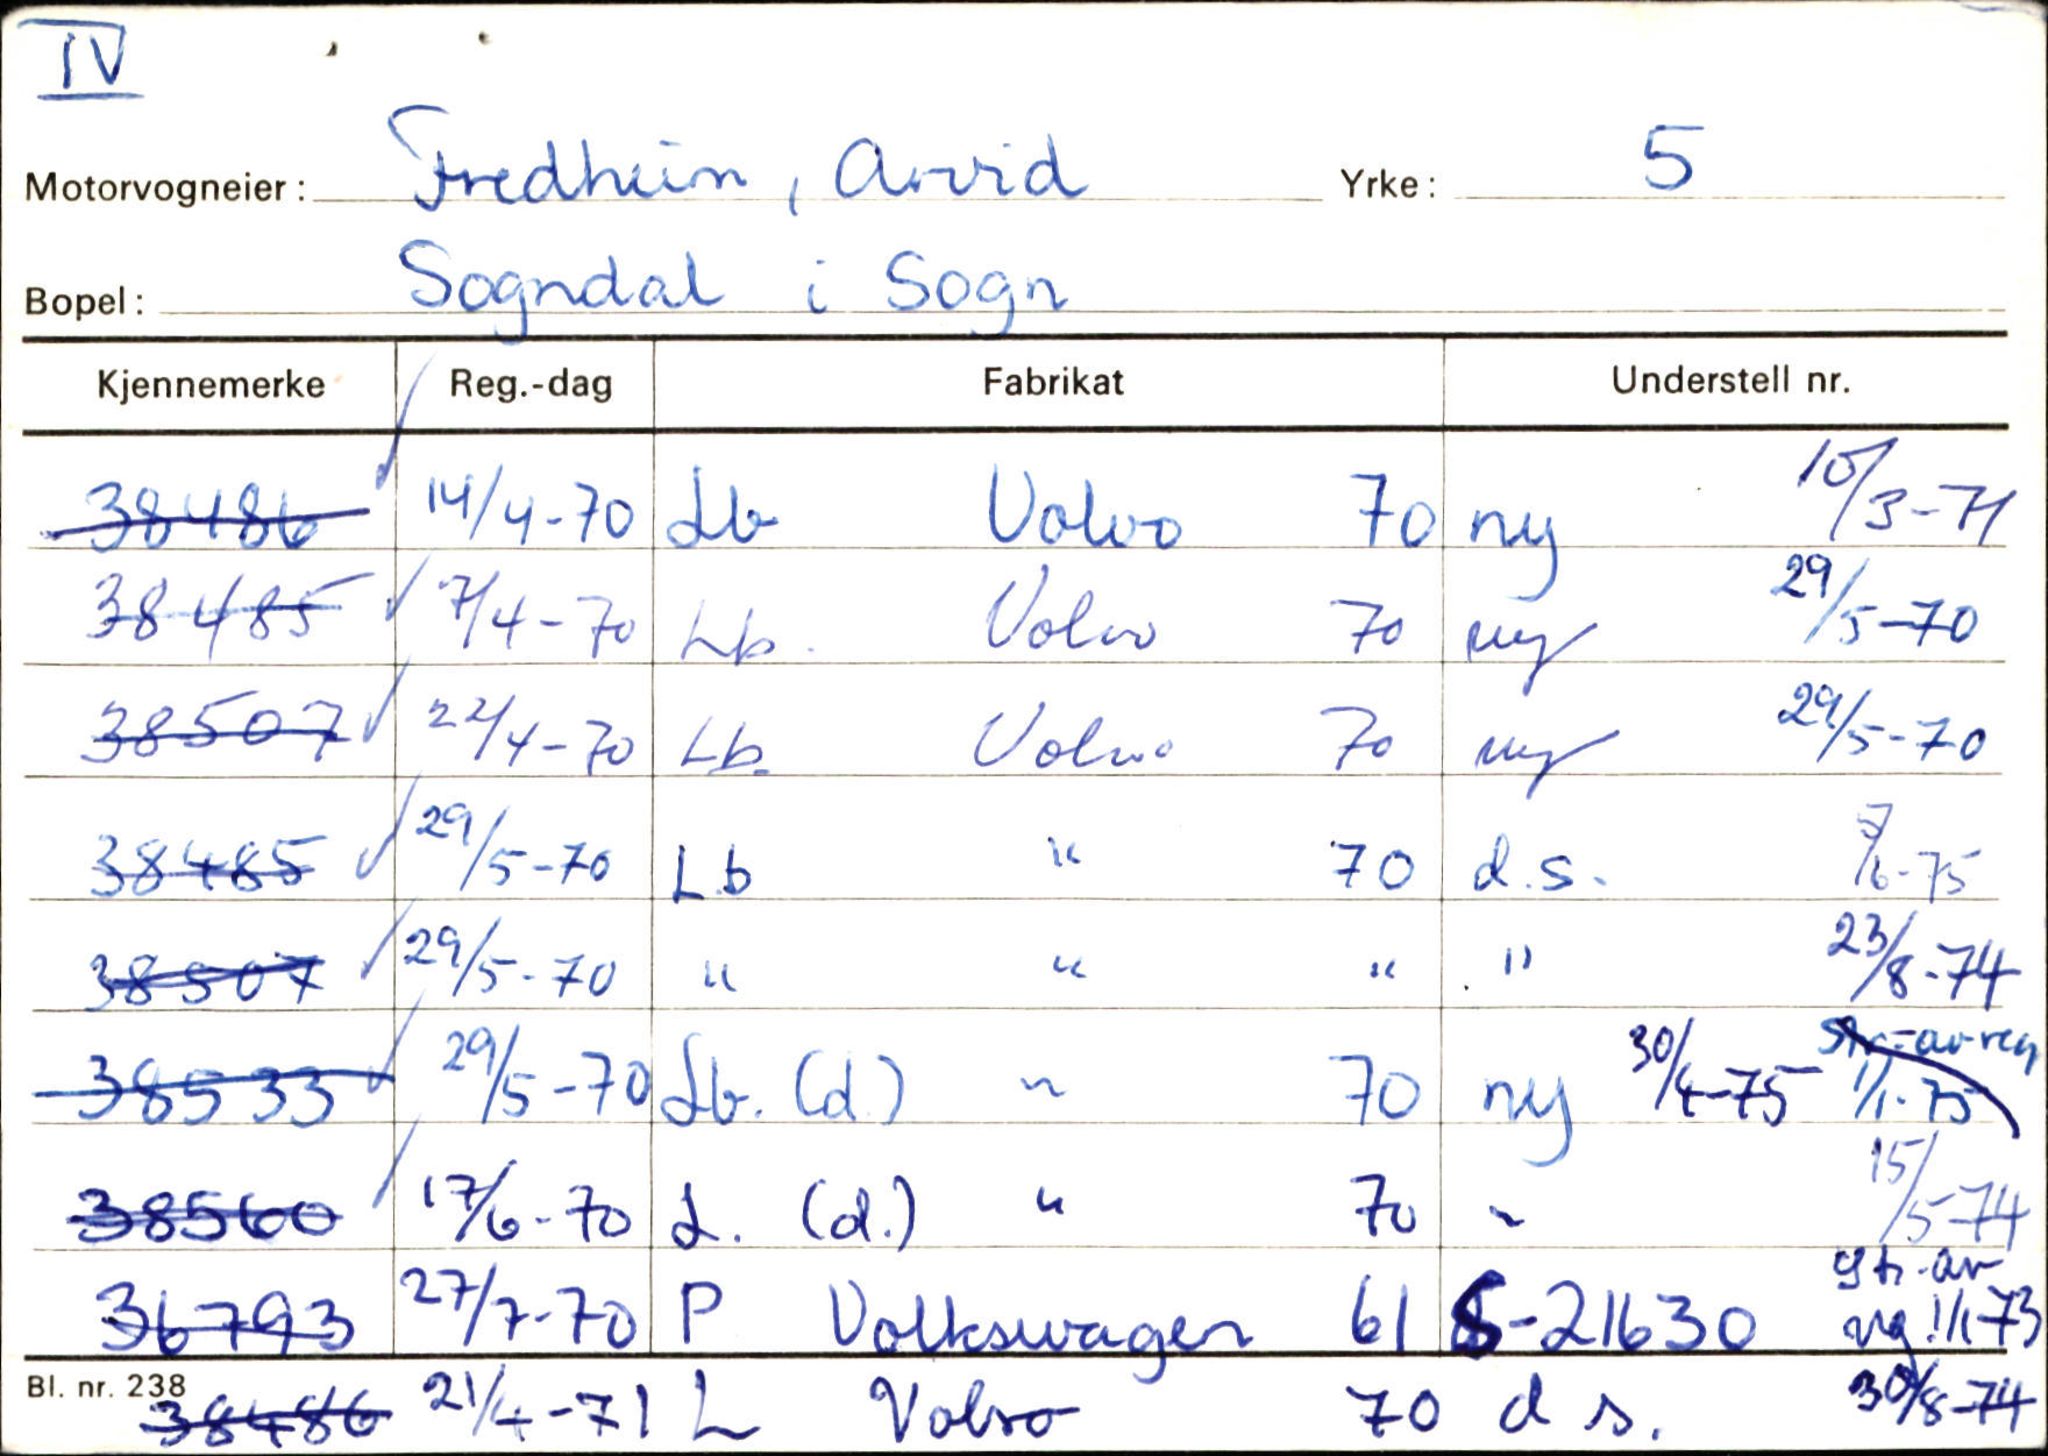 IV
Motorvogneier: Fredheim, Arvid Yrke: 5
Bopel: Sogndal i Sogn
Kjennemerke Reg.-dag Fabrikat Understell nr.
38486 14/4-70 Lb Volvo 70 ny 10/3-71
38485 7/4-70 Lb. Volvo 70 ny 29/5-70
38507 22/4-70 Lb. Volvo 70 ny 29/5-70
38485 29/5-70 Lb " 70 d.s. /6-75
38507 29/5-70 " " " " 23/8-74
38533 29/5-70 Lb. (d.) " 70 ny 30/4-75 str. av reg 1/1-75
38560 17/6-70 L. (d.) " 70 " 15/5-74
36793 27/7-70 P Volkswagen 61 S-21630 str. av reg 1/1-73
Bl. nr. 238
38486 21/4-71 L Volvo 70 d s. 30/8-74